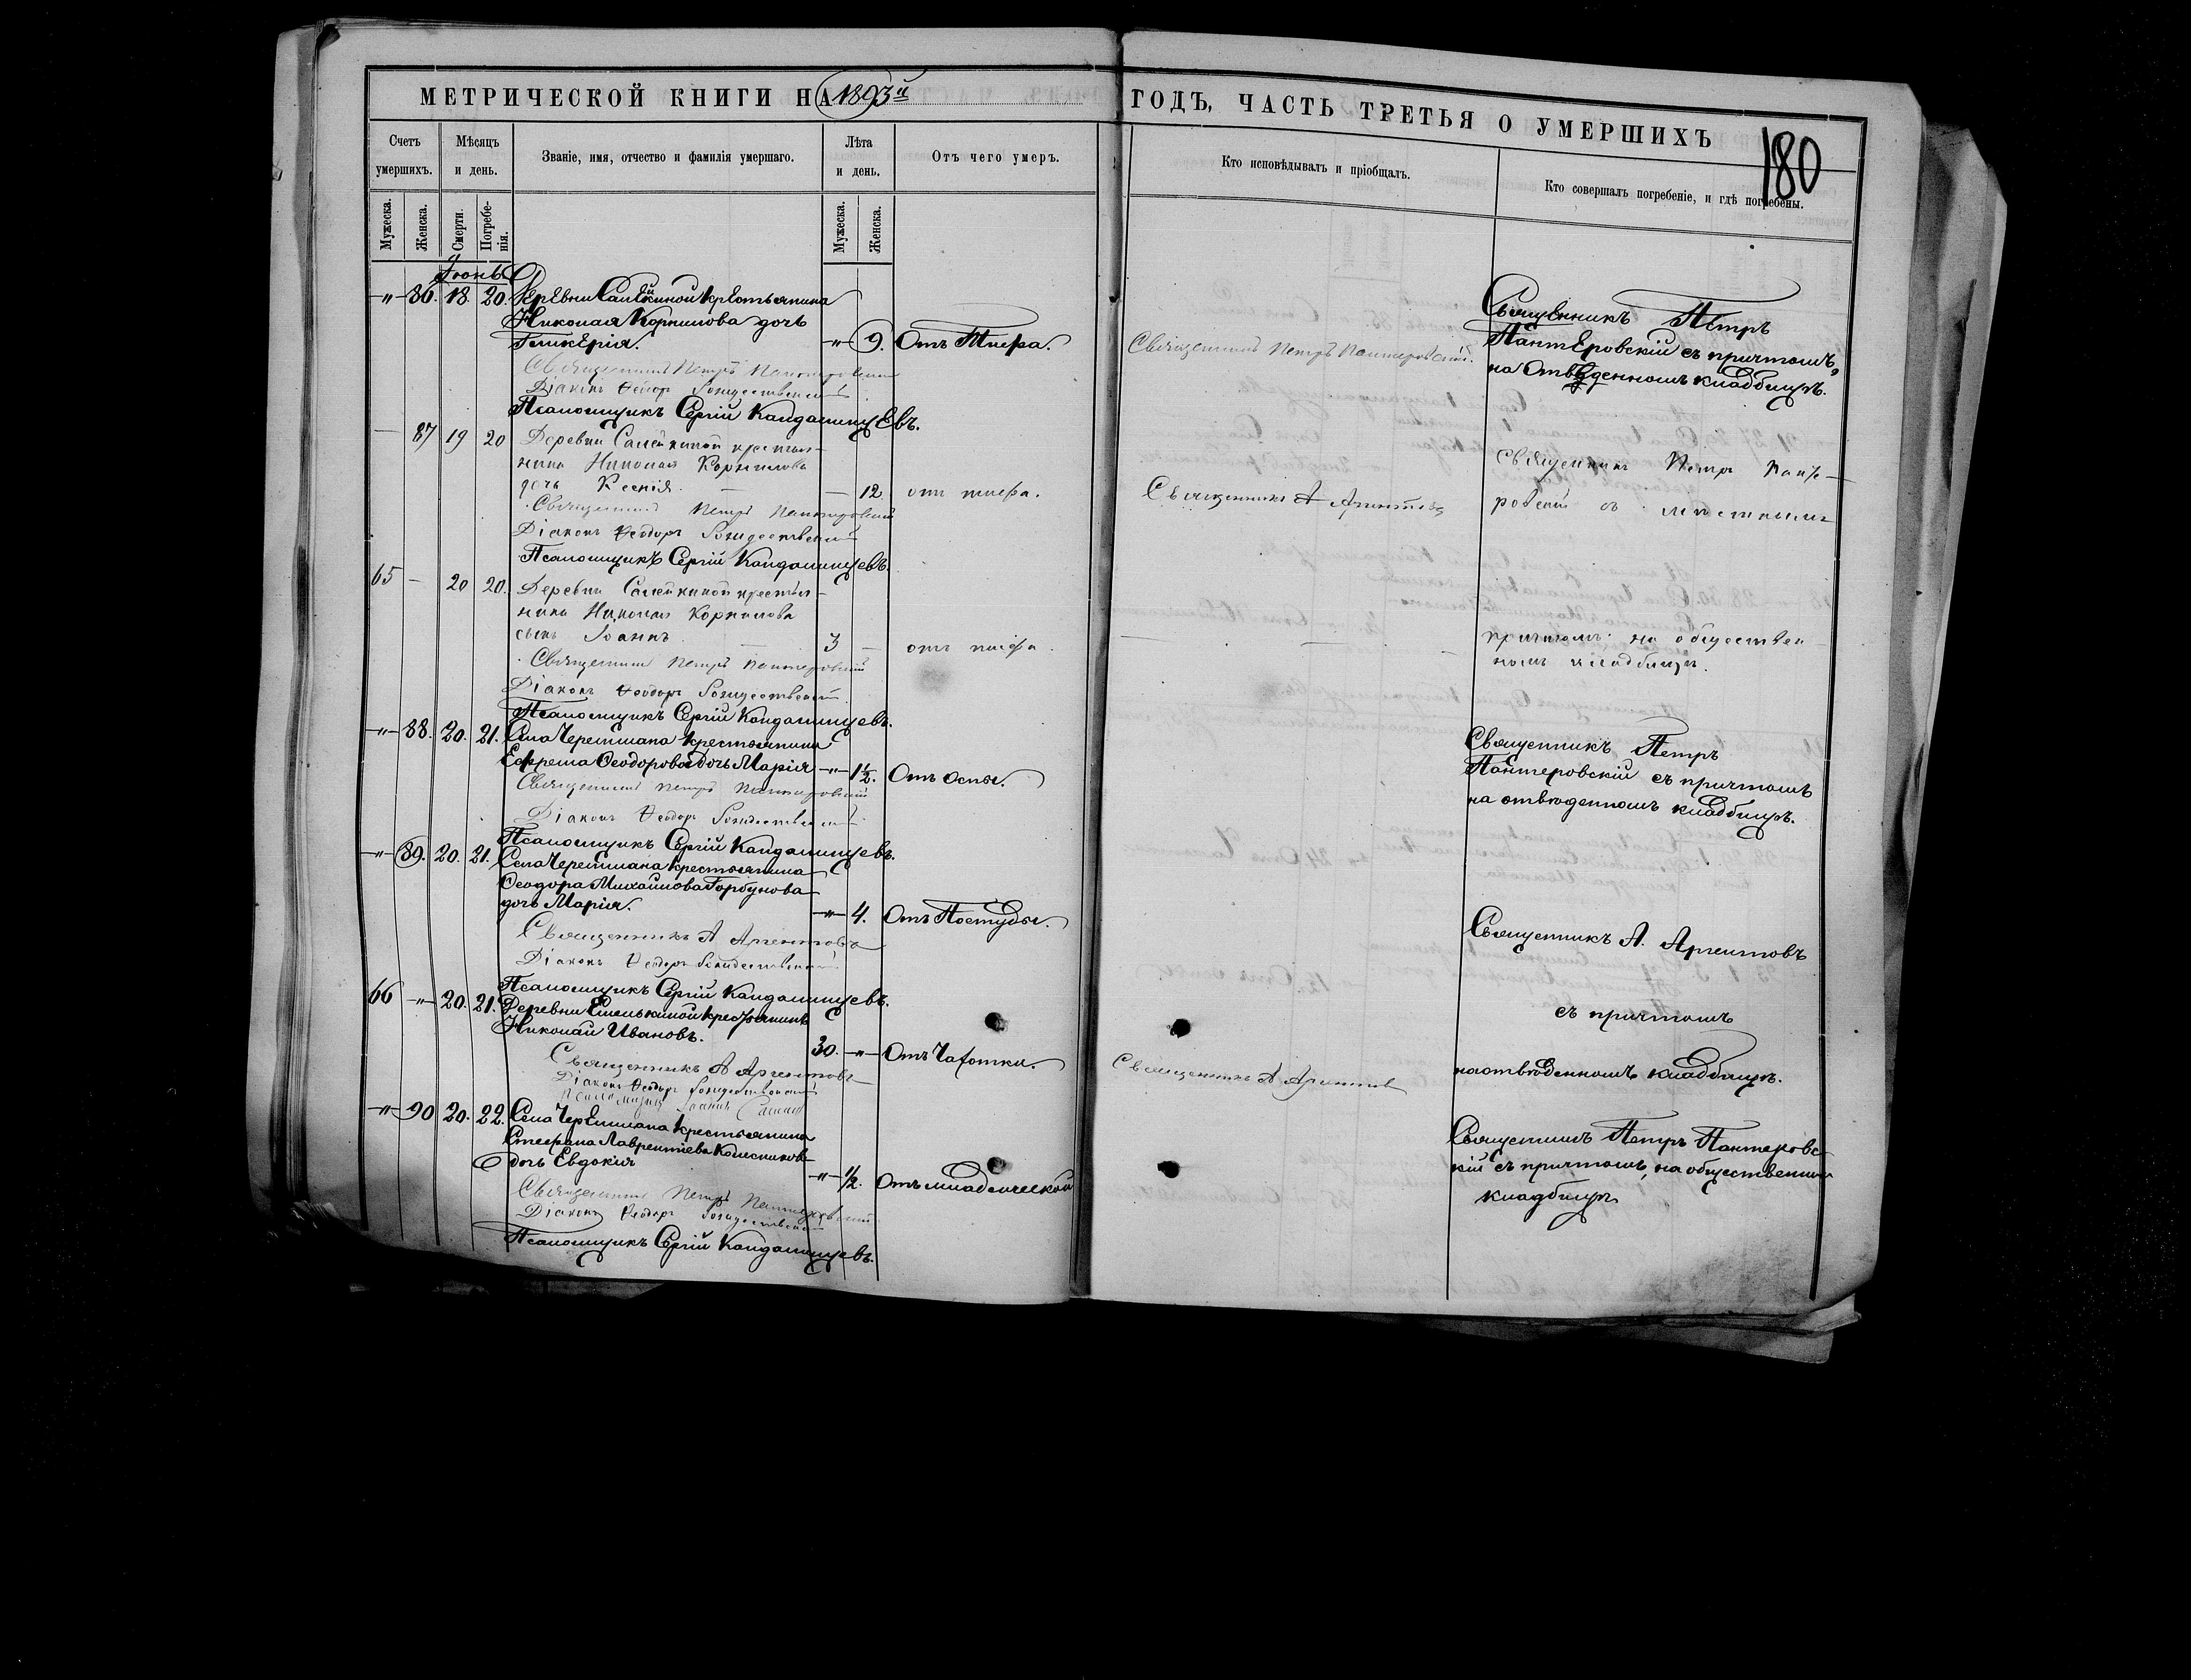 МЕТРИЧЕСКОЙ КНИГИ НА 1893й ГОДЪ, ЧАСТЬ ТРЕТЬЯ О УМЕРШИХЪ
180
Счетъ умершихъ.
Мѣсяцъ и день.
Званіе, имя, отчество и фамилія умершаго.
Лѣта и день.
Отъ чего умеръ.
Кто исповѣдывалъ и пріобщалъ.
Кто совершалъ погребеніе, и гдѣ погребены.
Мужеска.
Женска.
Смерти.
Погребенія.
Мужеска.
Женска.
Іюнь
-"- 86. 18. 20. Деревни Салейкиной крестьянина
Николая Корнилова дочь
Гликерія. -"- 9. Отъ Тифа.
Священникъ Петръ Пантеровскій.
Священникъ Петръ
Пантеровскій съ причтомъ,
на отведенномъ кладбищѣ.
Священникъ Петръ Пантеровскій
Діаконъ Ѳеодоръ Рождественскій
Псаломщикъ Сергій Кандалинцевъ.
— 87 19 20 Деревни Салейкиной крестья-
нина Николая Корнилова
дочь Ксенія. — 12 отъ тифа.
Священникъ А Аргентовъ
Священникъ Петръ Панте-
ровскій съ мѣстнымъ
Священникъ Петръ Пантеровскій
Діаконъ Ѳеодоръ Рождественскій
Псаломщикъ Сергій Кандалинцевъ.
65 — 20 20. Деревни Салейкиной крестья-
нина Николая Корнилова
сынъ Іоаннъ. 3 — отъ тифа.
причтомъ на обществен-
номъ кладбищѣ.
Священникъ Петръ Пантеровскій
Діаконъ Ѳеодоръ Рождественскій
Псаломщикъ Сергій Кандалинцевъ.
-"- 88. 20. 21. Села Черемшана крестьянина
Ефрема Ѳеодорова дочь Марія -"- 1½. Отъ Оспы.
Священникъ Петръ
Пантеровскій съ причтомъ
на отведенномъ кладбищѣ.
Священникъ Петръ Пантеровскій
Діаконъ Ѳеодоръ Рождественскій
Псаломщикъ Сергій Кандалинцевъ.
-"- 89. 20. 21. Села Черемшана крестьянина
Ѳеодора Михайлова Горбунова
дочь Марія. -"- 4. Отъ Постуды.
Священникъ А Аргентовъ
Діаконъ Ѳеодоръ Рождественскій
Псаломщикъ Сергій Кандалинцевъ.
Священникъ А. Аргентовъ
съ причтомъ
на отведенномъ кладбищѣ.
66 -"- 20. 21. Деревни Емелькиной крестьянинъ
Николай Ивановъ.
30. -"- Отъ Чахотки.
Священникъ А Аргентовъ
Священникъ А Аргентовъ
Діаконъ Ѳеодоръ Рождественскій
Псаломщикъ Іоаннъ
-"- 90 20. 22. Села Черемшана крестьянина
Стефана Лаврентіева Колесникова
дочь Евдокія -"- ½. Отъ младенческой
Священникъ Петръ Пантеровс-
кій съ причтомъ, на общественномъ
кладбищѣ
Священникъ Петръ Пантеровскій
Діаконъ Ѳеодоръ Рождественскій
Псаломщикъ Сергій Кандалинцевъ.